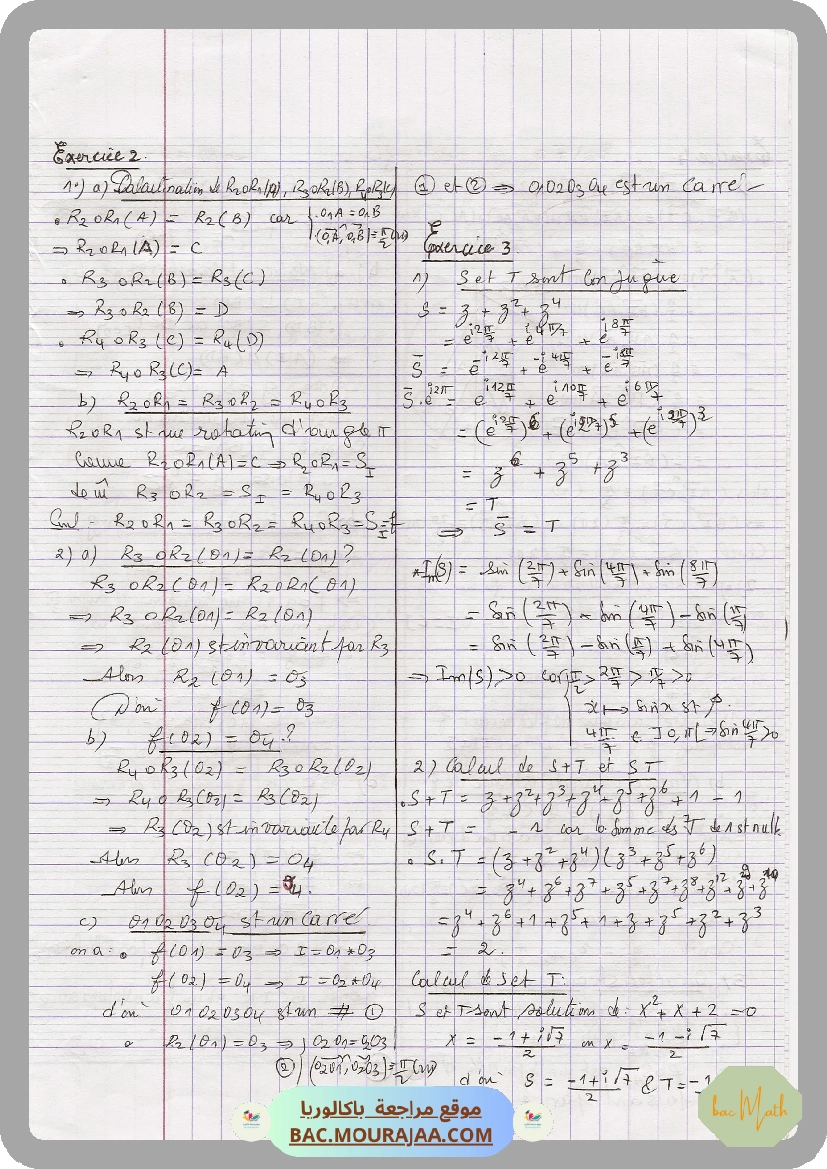 Exercice 2.
1°) a) Détermination de R2oR1(A), R3oR2(B), R4oR3(C)
• R2oR1(A) = R2(B) car { O1A = O1B
(O1A, O1B) ≡ π/2 (2π)
⇒ R2oR1(A) = C
• R3oR2(B) = R3(C)
⇒ R3oR2(B) = D
• R4oR3(C) = R4(D)
⇒ R4oR3(C) = A
b) R2oR1 = R3oR2 = R4oR3
R2oR1 st une rotation d'angle π
Comme R2oR1(A) = C ⇒ R2oR1 = S_I
de m̂ R3oR2 = S_I = R4oR3
R2oR1 = R3oR2 = R4oR3 = S_I = f
2) a) R3oR2(O1) = R2(O1) ?
R3oR2(O1) = R2oR1(O1)
⇒ R3oR2(O1) = R2(O1)
⇒ R2(O1) st invariant par R3
Alors R2(O1) = O3
D'où f(O1) = O3
b) f(O2) = O4 ?
R4oR3(O2) = R3oR2(O2)
⇒ R4oR3(O2) = R3(O2)
⇒ R3(O2) st invariante par R4
Alors R3(O2) = O4
Alors f(O2) = O4.
c) O1O2O3O4 st un Carré
on a : • f(O1) = O3 ⇒ I = O1 * O3
f(O2) = O4 ⇒ I = O2 * O4
d'où O1O2O3O4 st un # ①
• R2(O1) = O3 ⇒ { O2O1 = O2O3
② (O2O1, O2O3) ≡ π/2 (2π)
① et ② ⇒ O1O2O3O4 est un Carré
Exercice 3
1) S et T sont Conjugue
S = z + z² + z⁴
= e^(i2π/7) + e^(i4π/7) + e^(i8π/7)
S̄ = e^(-i2π/7) + e^(-i4π/7) + e^(-i8π/7)
S̄.e^(i2π) = e^(i12π/7) + e^(i10π/7) + e^(i6π/7)
= (e^(i2π/7))⁶ + (e^(i2π/7))⁵ + (e^(i2π/7))³
= z⁶ + z⁵ + z³
= T
⇒ S̄ = T
* Im(S) = sin(2π/7) + sin(4π/7) + sin(8π/7)
= sin(2π/7) + sin(4π/7) - sin(π/7)
= sin(2π/7) - sin(π/7) + sin(4π/7)
⇒ Im(S) > 0 car { π/2 > 2π/7 > π/7 > 0
x ↦ sin x st ↗.
4π/7 ∈ ]0, π[ ⇒ sin 4π/7 > 0
2) Calcul de S+T et ST
• S+T = z + z² + z³ + z⁴ + z⁵ + z⁶ + 1 - 1
S+T = - 1 car la somme des ⁷√ de 1 st nulle
• S.T = (z + z² + z⁴)(z³ + z⁵ + z⁶)
= z⁴ + z⁶ + z⁷ + z⁵ + z⁷ + z⁸ + z¹² + z⁹ + z¹⁰
= z⁴ + z⁶ + 1 + z⁵ + 1 + z + z⁵ + z² + z³
= 2.
Calcul de S et T :
S et T sont solutions de : X² + X + 2 = 0
X = (-1 + i√7)/2 ou X = (-1 - i√7)/2
d'où S = (-1 + i√7)/2 & T = -1
موقع مراجعة باكالوريا
BAC.MOURAJAA.COM
bac Math